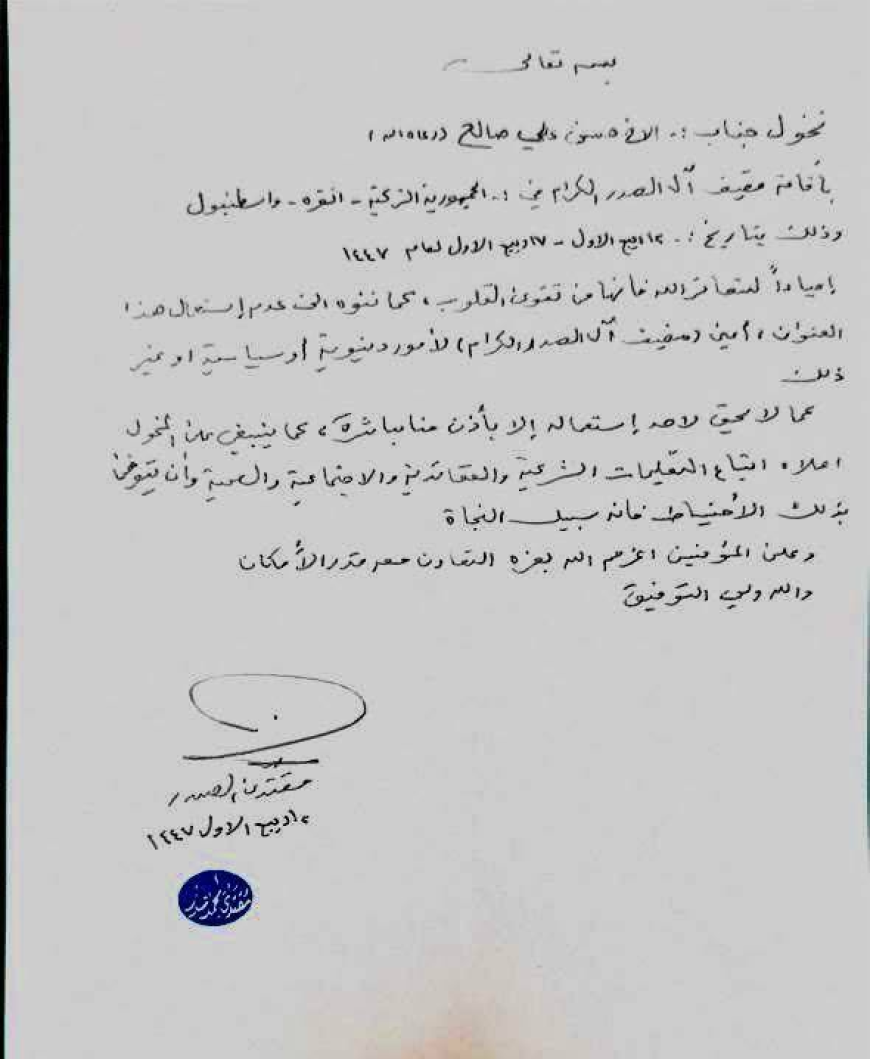 بسمه تعالى
نخول جناب :. الاخ حسون علي صالح (رعاه الله)
بأقامة مضيف آل الصدر الكرام في :. الجمهورية التركية - انقره - واسطنبول
وذلك بتاريخ :. ١٢ ربيع الاول - ١٧ ربيع الاول لعام ١٤٤٧
إحياءاً لشعائر الله فانها من تقوى القلوب ، كما ننوه الى عدم إستعمال هذا
العنوان ، أعني (مضيف آل الصدر الكرام) لأمور دنيوية أو سياسية او غير
ذلك
كما لا يحق لاحد إستعماله إلا بأذن منا مباشرة ، كما ينبغي على المخول
اعلاه اتباع التعليمات الشرعية والعقائدية والاجتماعية والصحية وأن يتوخى
بذلك الأحتياط فانه سبيل النجاة
وعلى المؤمنين اعزهم الله بعزه التعاون معه قدر الأمكان
والله ولي التوفيق
مقتدى الصدر
ربيع الاول ١٤٤٧
مقتدى محمد الصدر